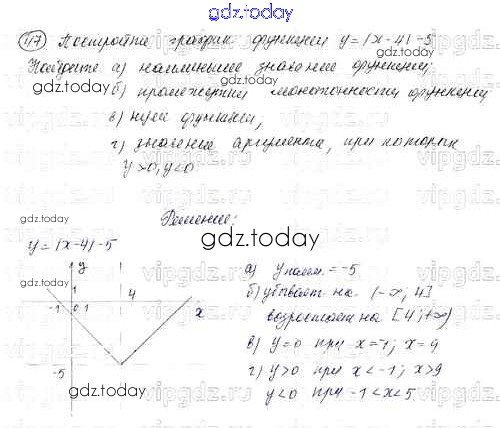 gdz.today
117 Постройте график функции y=|x-4|-5
Найдите а) наименьшее значение функции;
gdz.today
б) промежутки монотонности функции
gdz.today
в) нули функции,
г) значения аргумента, при которых
y>0, y<0
gdz.today
Решение:
gdz.today
y=|x-4|-5
gdz.today
y
1
4
-1 0 1 x
-5
gdz.today
а) y наим.=-5
б) убывает на (-∞; 4]
возрастает на [4; +∞)
в) y=0 при x=-1; x=9
г) y>0 при x<-1; x>9
y<0 при -1<x<5
gdz.today
gdz.today